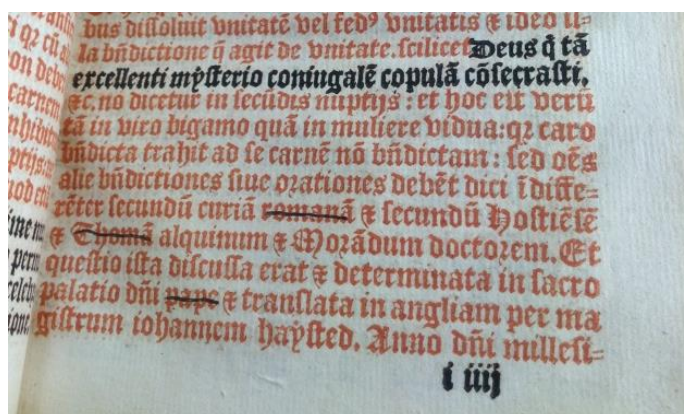 bus dissoluit vnitatē vel fedꝰ vnitatis ⁊ ideo il-
la bn̄dictione q̄ agit de vnitate. scilicet Deus q̇ tā
excellenti mẏsterio coniugalē copulā cōsecrasti.
⁊c. no dicetur in secūdis nuptijs : et hoc est verū
tā in viro bigamo quā in muliere vidua: qꝛ caro
bn̄dicta trahit ad se carnē nō bn̄dictam : sed oēs
alie bn̄dictiones siue orationes debēt dici īdiffe-
rēter secundū curiā romanā ⁊ secundū Hostiēsē
⁊ Thomā alquinum ⁊ Morādum doctorem. Et
questio ista discussa erat ⁊ determinata in sacro
palatio dn̄i pape ⁊ translata in angliam per ma
gistrum iohannem haẏsted. Anno dn̄i millesi-
i iiij